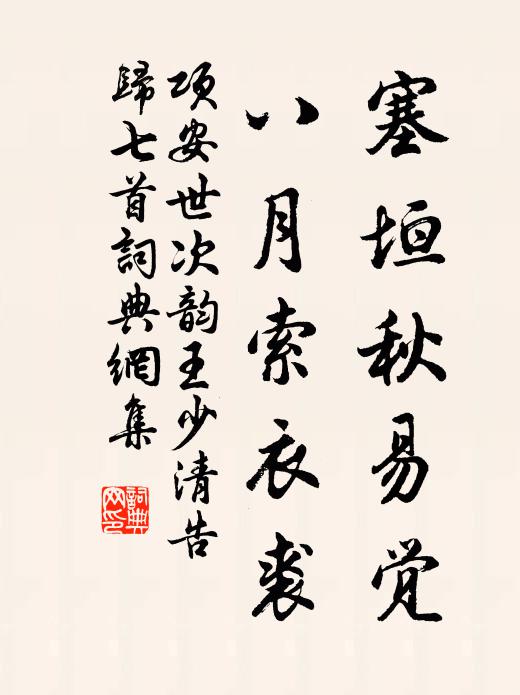 塞垣秋易觉
八月索衣裘
项安世次韵王少清告
归七首词典网集
詞典
网印